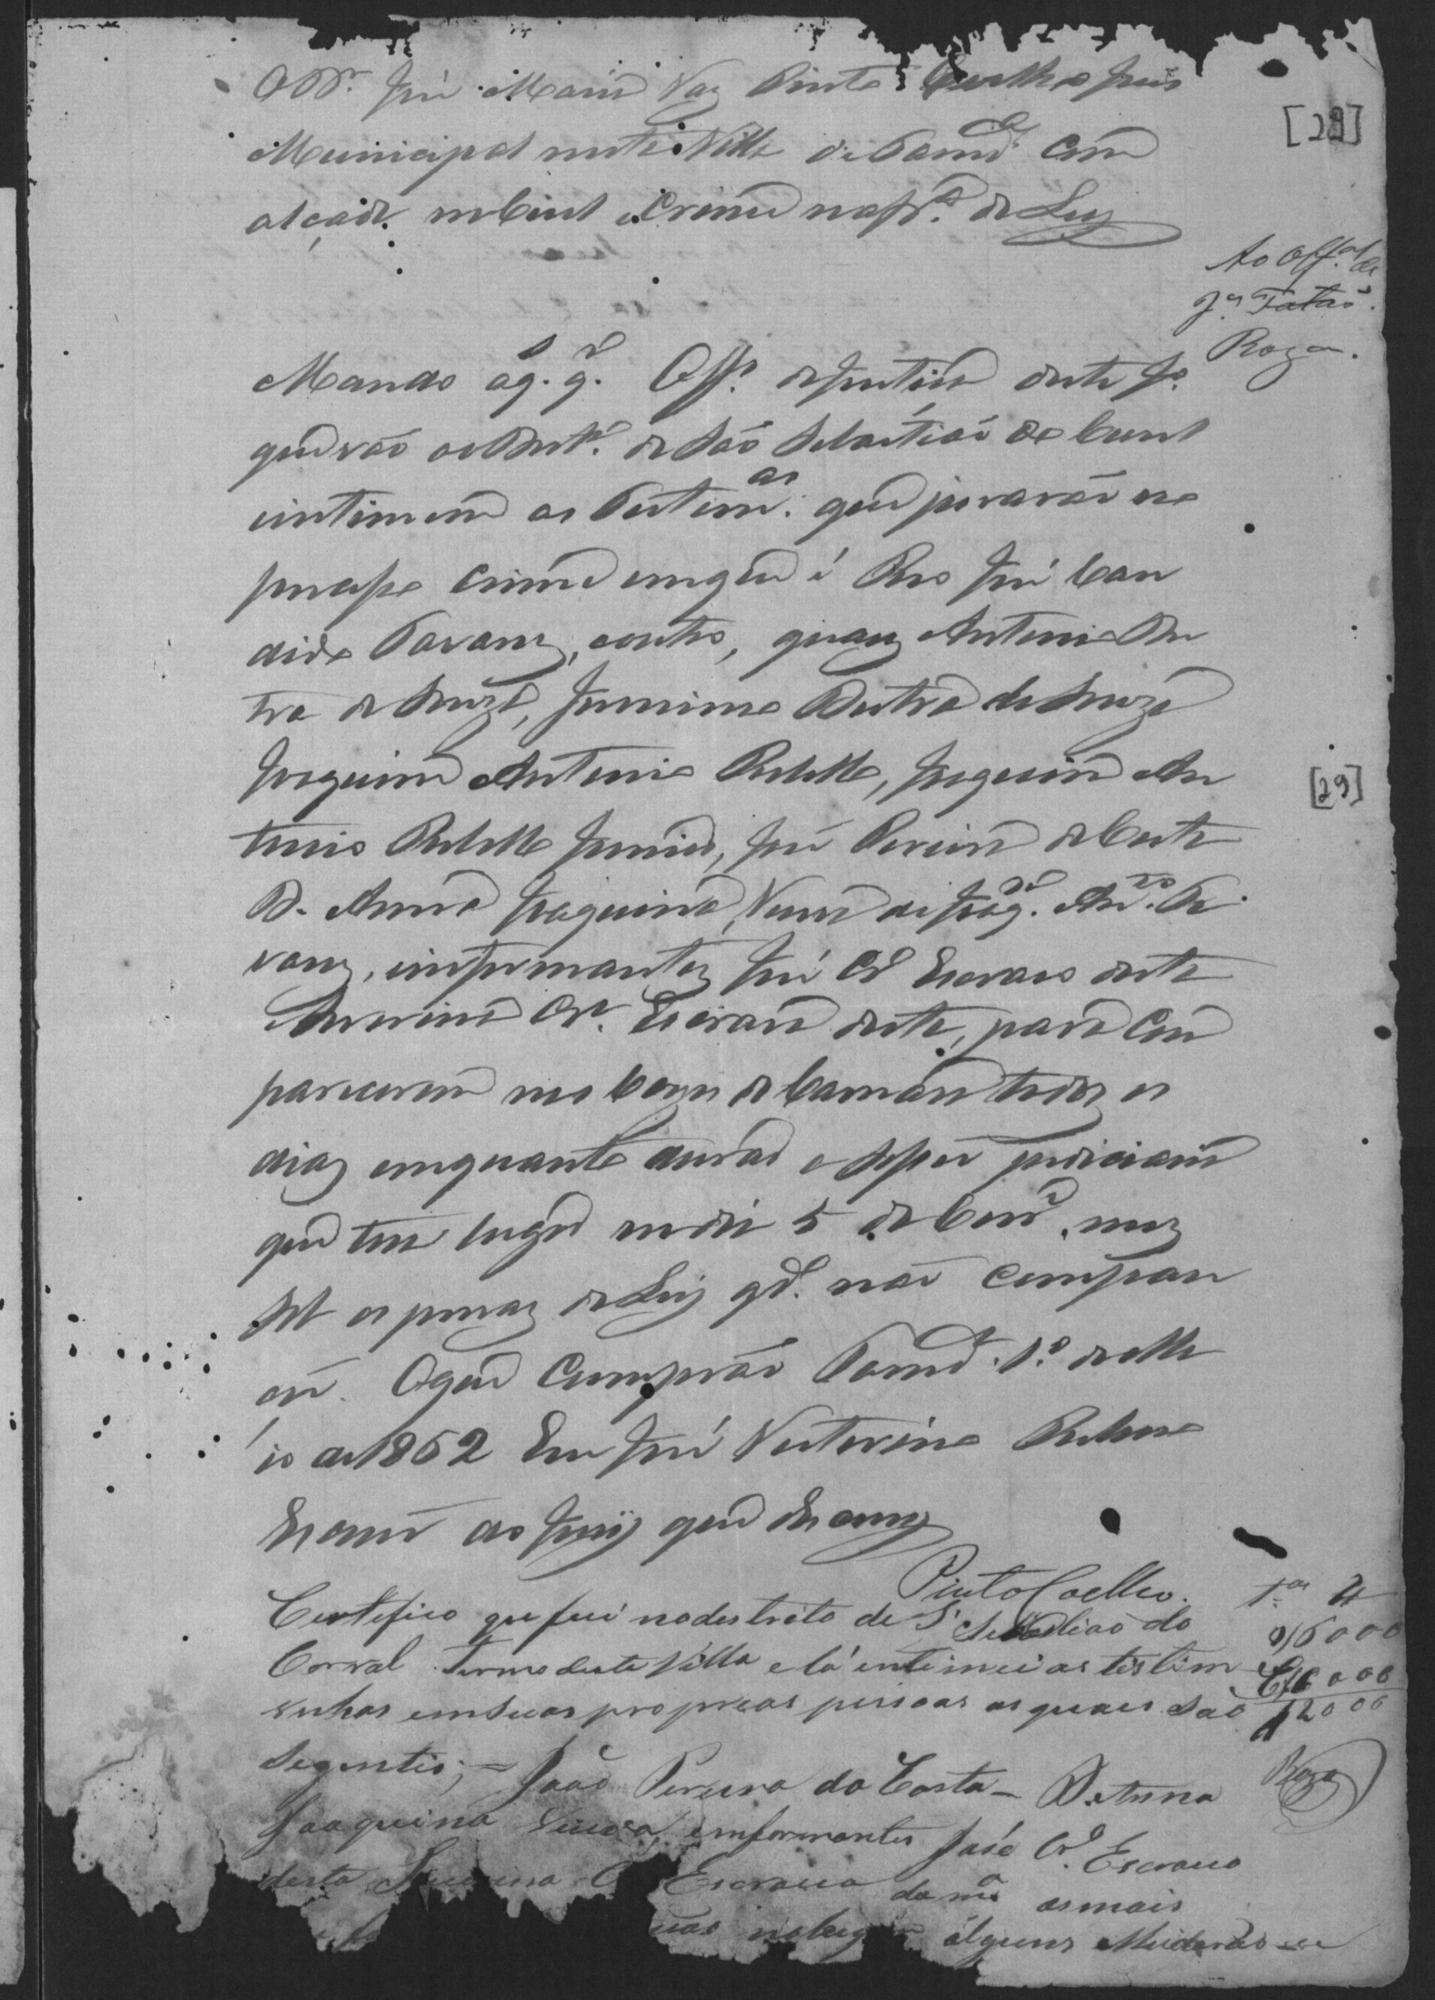 O Dr. José Maria Vaz Pinto Coelho Juis
[29]
Municipal nesta Villa de Tamd.e com
alçada no Civel e Crime na fr.a da Ley
Ao Off.al de
J.a
Roza.
Mando aos q.q.r Off.s de Justiça deste Jo.
que vão ao Destr.o de São Sebastião do Curral
intimem as Testem.as que jurarão no
processo crime em que é Reo José Can
dido Tavares, e outro, quaes Antonio Du
tra de Souza, Jeronimo Dutra de Souza
Joaquim Antonio Rabello, Joaquim An
[29]
tonio Rabello Junior, José Pereira da Costa
D. Anna Joaquina, Viuva de Joaq.m An.to Ta
vares, informantes José Cr.o Escravo desta
Severina Cr.a Escrava desta, para com
parecerem nos Paços da Camara todos os
dias emquanto durar a Sessão judiciaria
que tem lugar no dia 5 do Corr.e, mez
sob as penas da Ley q.do não compare
ção. O que cumprão Tamd.e 1.o de Ma
io de 1862 Eu José Victorino
Escrivão do Juizo que Escrevy
Pinto Coelho.
Certefico que fui no destrito de S. Sebastião do
Corral Termo desta Villa e lá intimei as testim
unhas em suas propreas pessoas as quaes são
6000
6000
12000
Roza
Seguntes; = João Pereira da Costa = D. Anna
Joaquina Viuva, emformantes José Cr.o Escravo
desta Severina Cr.a Escrava da m.a as mais
alguens Mudarão se